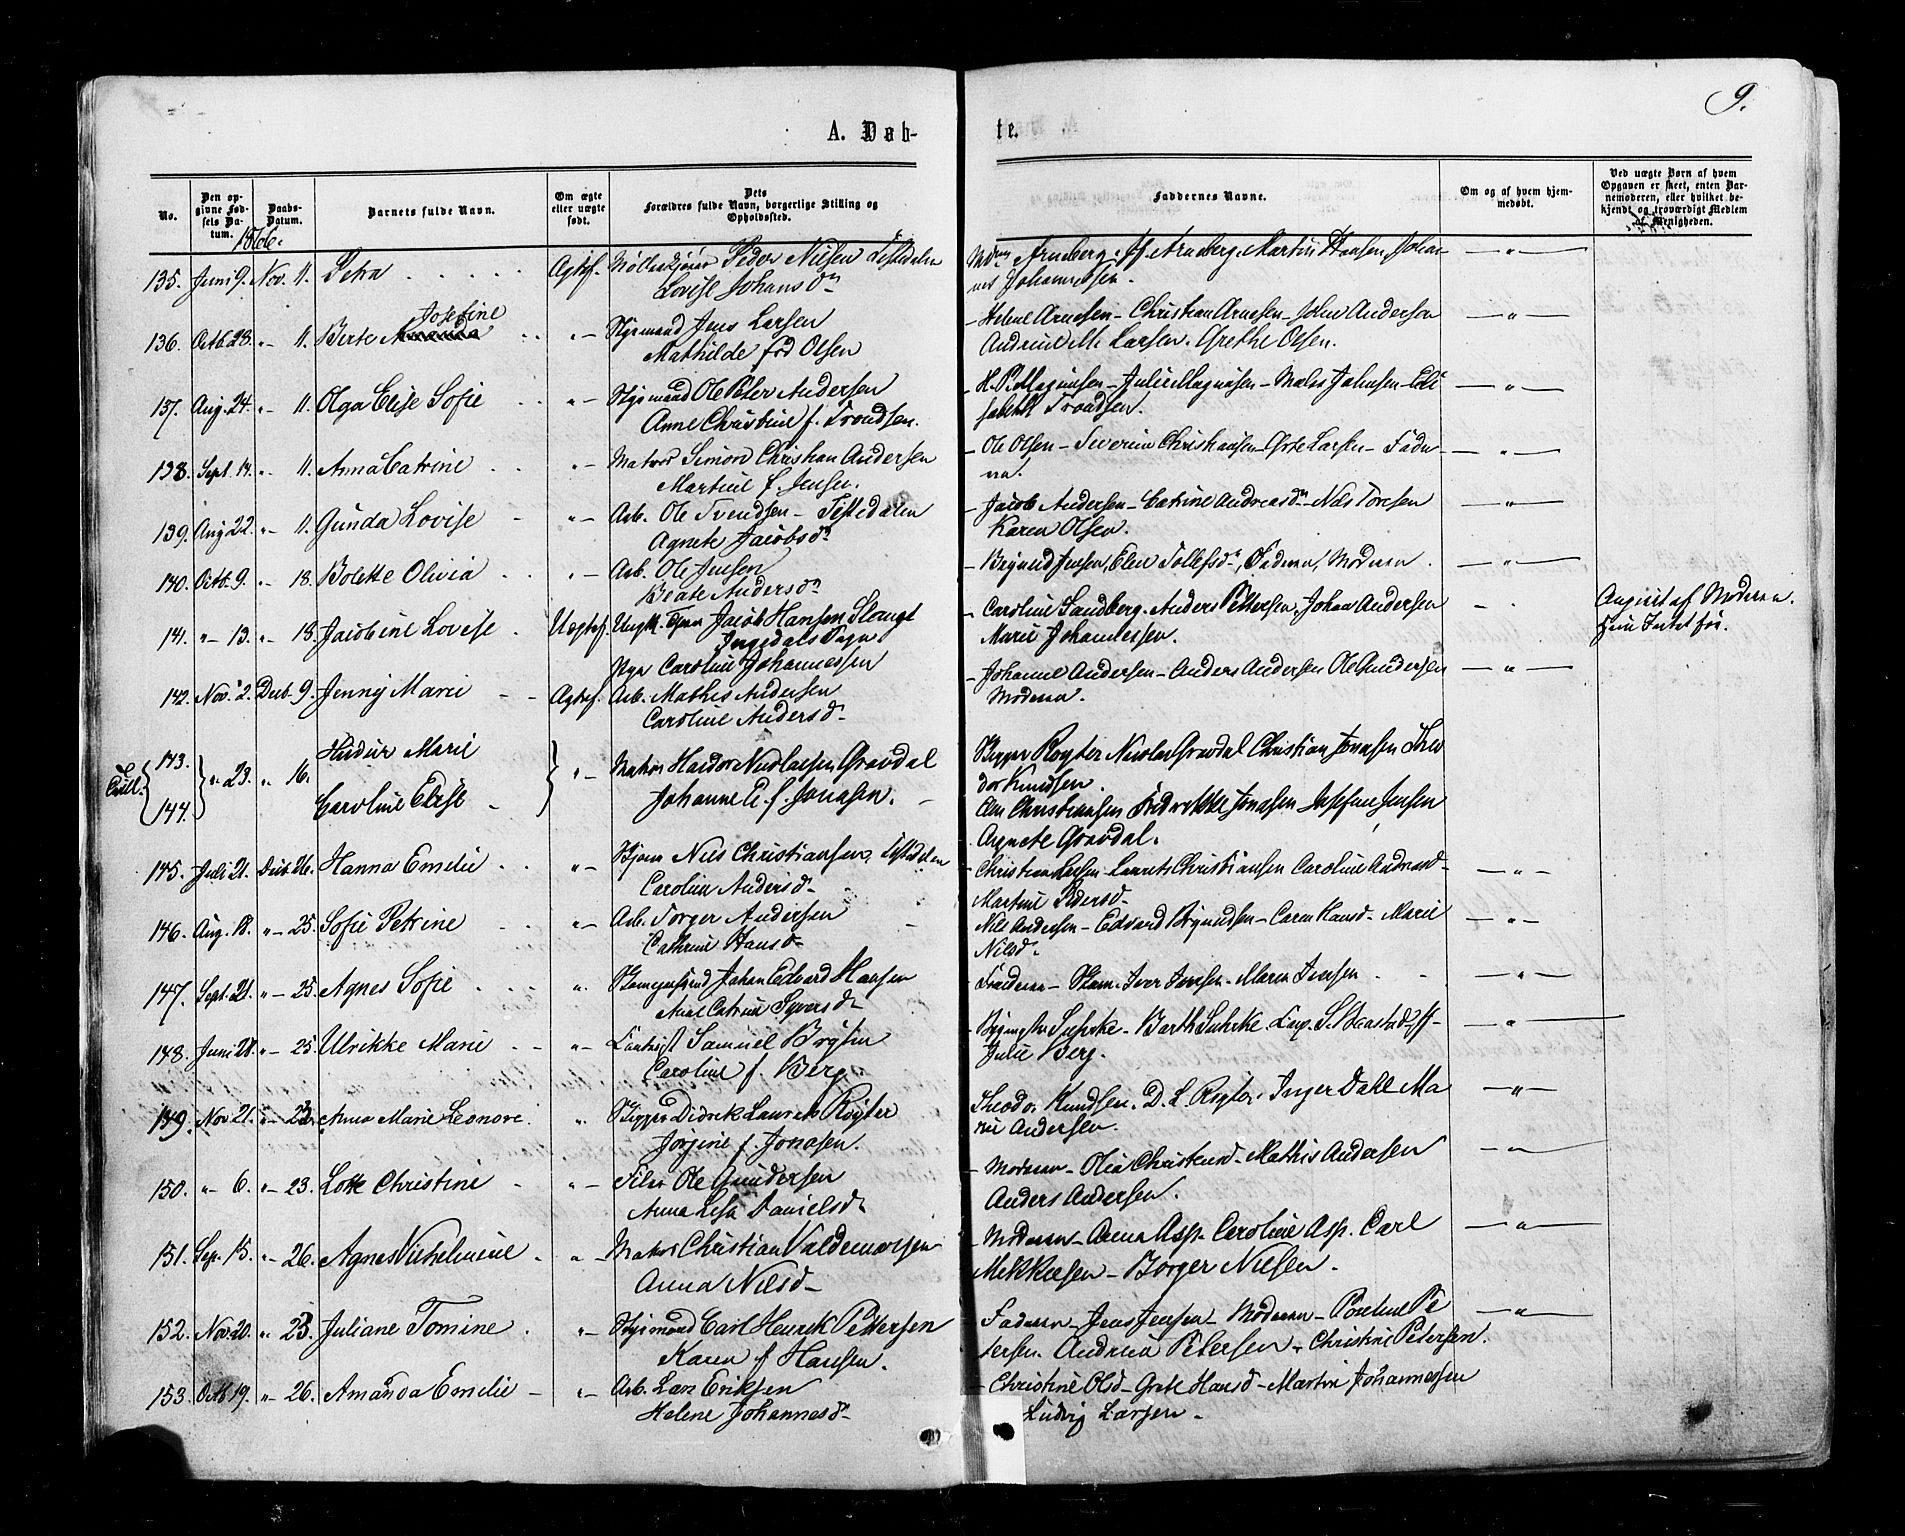 9.
A. Døb-
te.
No.
Den op-
givne Fød-
sels Da-
tum.
Daabs-
Datum.
Barnets fulde Navn.
Om ægte
eller uægte
født.
Dets
Forældres fulde Navn, borgerlige Stilling og
Opholdssted.
Faddernes Navne.
Om og af hvem hjem-
medøbt.
Ved uægte Børn af hvem
Opgaven er skeet, enten Bar-
nemoderen, eller hvilket be-
kjendt og troværdigt Medlem
af Menigheden.
1866.
135. Juni 9. Nov. 11. Petra Ægtef. Peder Nilsen Tistedalen
Lovise Johansdn
Arneberg. Arneberg. Martin Hansen, Johan-
nes Johannessen. — " —
136. Octb. 28. " 11. Berte Amanda Josefine " Jens Larsen
Mathilde fød Olsen
Helene Arnesen - Christian Arnesen - John Andersen
Andrine M. Larsen. Grethe Olsen. — " —
137. Aug. 24. " 11. Olga Elise Sofie " Styrmand Ole Peter Andersen
Anne Christine f. Trondsen.
H. P. Magnusen - Julie Magnusen - Johnsen - Eli
sabeth Trondsen. — " —
138. Sept. 14. " 11. Anna Catrine " Matros Simon Christian Andersen
Martine f. Jensen.
Ole Olsen - Severine Christiansen - Larsen - Fade-
ren. — " —
139. Aug. 22. " 11. Gunda Lovise " Arb. Ole Svendsen - Tistedalen
Agnete Jacobsdn
Jacob Andersen - Catrine Andreasdn - Nils Toresen
Karen Olsen. — " —
140. Octb. 9. " 18. Bolette Olivia " Arb. Ole Jensen
Beate Andersdn
Brynild Jensen, Elen Tollefsdn, Faderen, Moderen. — " —
141. " 13. " 18. Jacobine Lovise. Uægtef. Ungk. Jacob Hansen
Ingedals Sogn
Pige Caroline Johannessen
Caroline Sandberg. Anders Pettersen, Johan Andersen
Marie Johannessen.
Angivet af Moderen.
142. Nov. 2. Decb. 9. Jenny Marie Ægtef. Arb. Mathis Andersen
Caroline Andersd.
Johanne Andersen - Anders Andersen Ole Andersen
Moderen. — " —
Tvill.
143. " 23. " 16. Marie " Matros Gravdal
Johanne E. f. Jonasen.
Skipper Røyter Nicolai Gravdal Christian Jonasen Theo
dor Knudsen.
144. Caroline Elise
Christiansen Fredrikke Jonasen Josefine Jensen
Agnete Gravdal.
145. Juli 21. Decb. 26. Hanna Emelie " Nils Christiansen, Tistedalen
Caroline Andersd.
Christian Larsen - Laurits Christiansen Caroline Andreasd.
Martine Pedersd. — " —
146. Aug. 18. " 25. Sofie Petrine " Arb. Torger Andersen
Cathrine Hansd.
Nils Andersen - Edvard Brynildsen - Caren Hansd. Marie
Nilsd. — " —
147. Sept. 21. " 25. Agnes Sofie " Johan Edvard Hansen
Ane Catrine Syversd.
Faderen - Iver Iversen. Maren Iversen — " —
148. Juni 28. " 25. Ulrikke Marie " Samuel
Caroline f. Berg
Suhrke - Barth Suhrke.
Julie Berg. — " —
149. Nov. 21. " 23. Anna Marie Leonore. " Skipper Didrik Laurits Røyter
Jørgine f. Jonasen.
Theodor Knudsen. D. L. Røyter. Inger Dahl Ma
rie Andersen. — " —
150. " 6. " 23. Lotte Christine " Ole Gundersen
Anna Lisa Danielsd.
Moderen - Olia Christensd. Mathis Andersen
Anders Andersen. — " —
151. Sep. 15. " 26. Agnes Vilhelmine " Matros Christian Valdemarsen
Anna Nilsd.
Moderen - Anna Asp. Caroline Asp. Carl
Mikkelsen - Børger Nielsen. — " —
152. Nov. 20. " 23. Juliane Tomine " Styrmand Carl Henrik Pettersen
Karen f. Hansen.
Faderen - Jens Jensen - Moderen - Pe
tersen. Andrea Petersen - Christine Petersen. — " —
153. Octb. 19. " 26. Amanda Emelie " Arb. Lars Eriksen
Helene Johannesd.
Christine Olsd. Grete Hansd. Martin Johannessen
Ludvig Larsen.